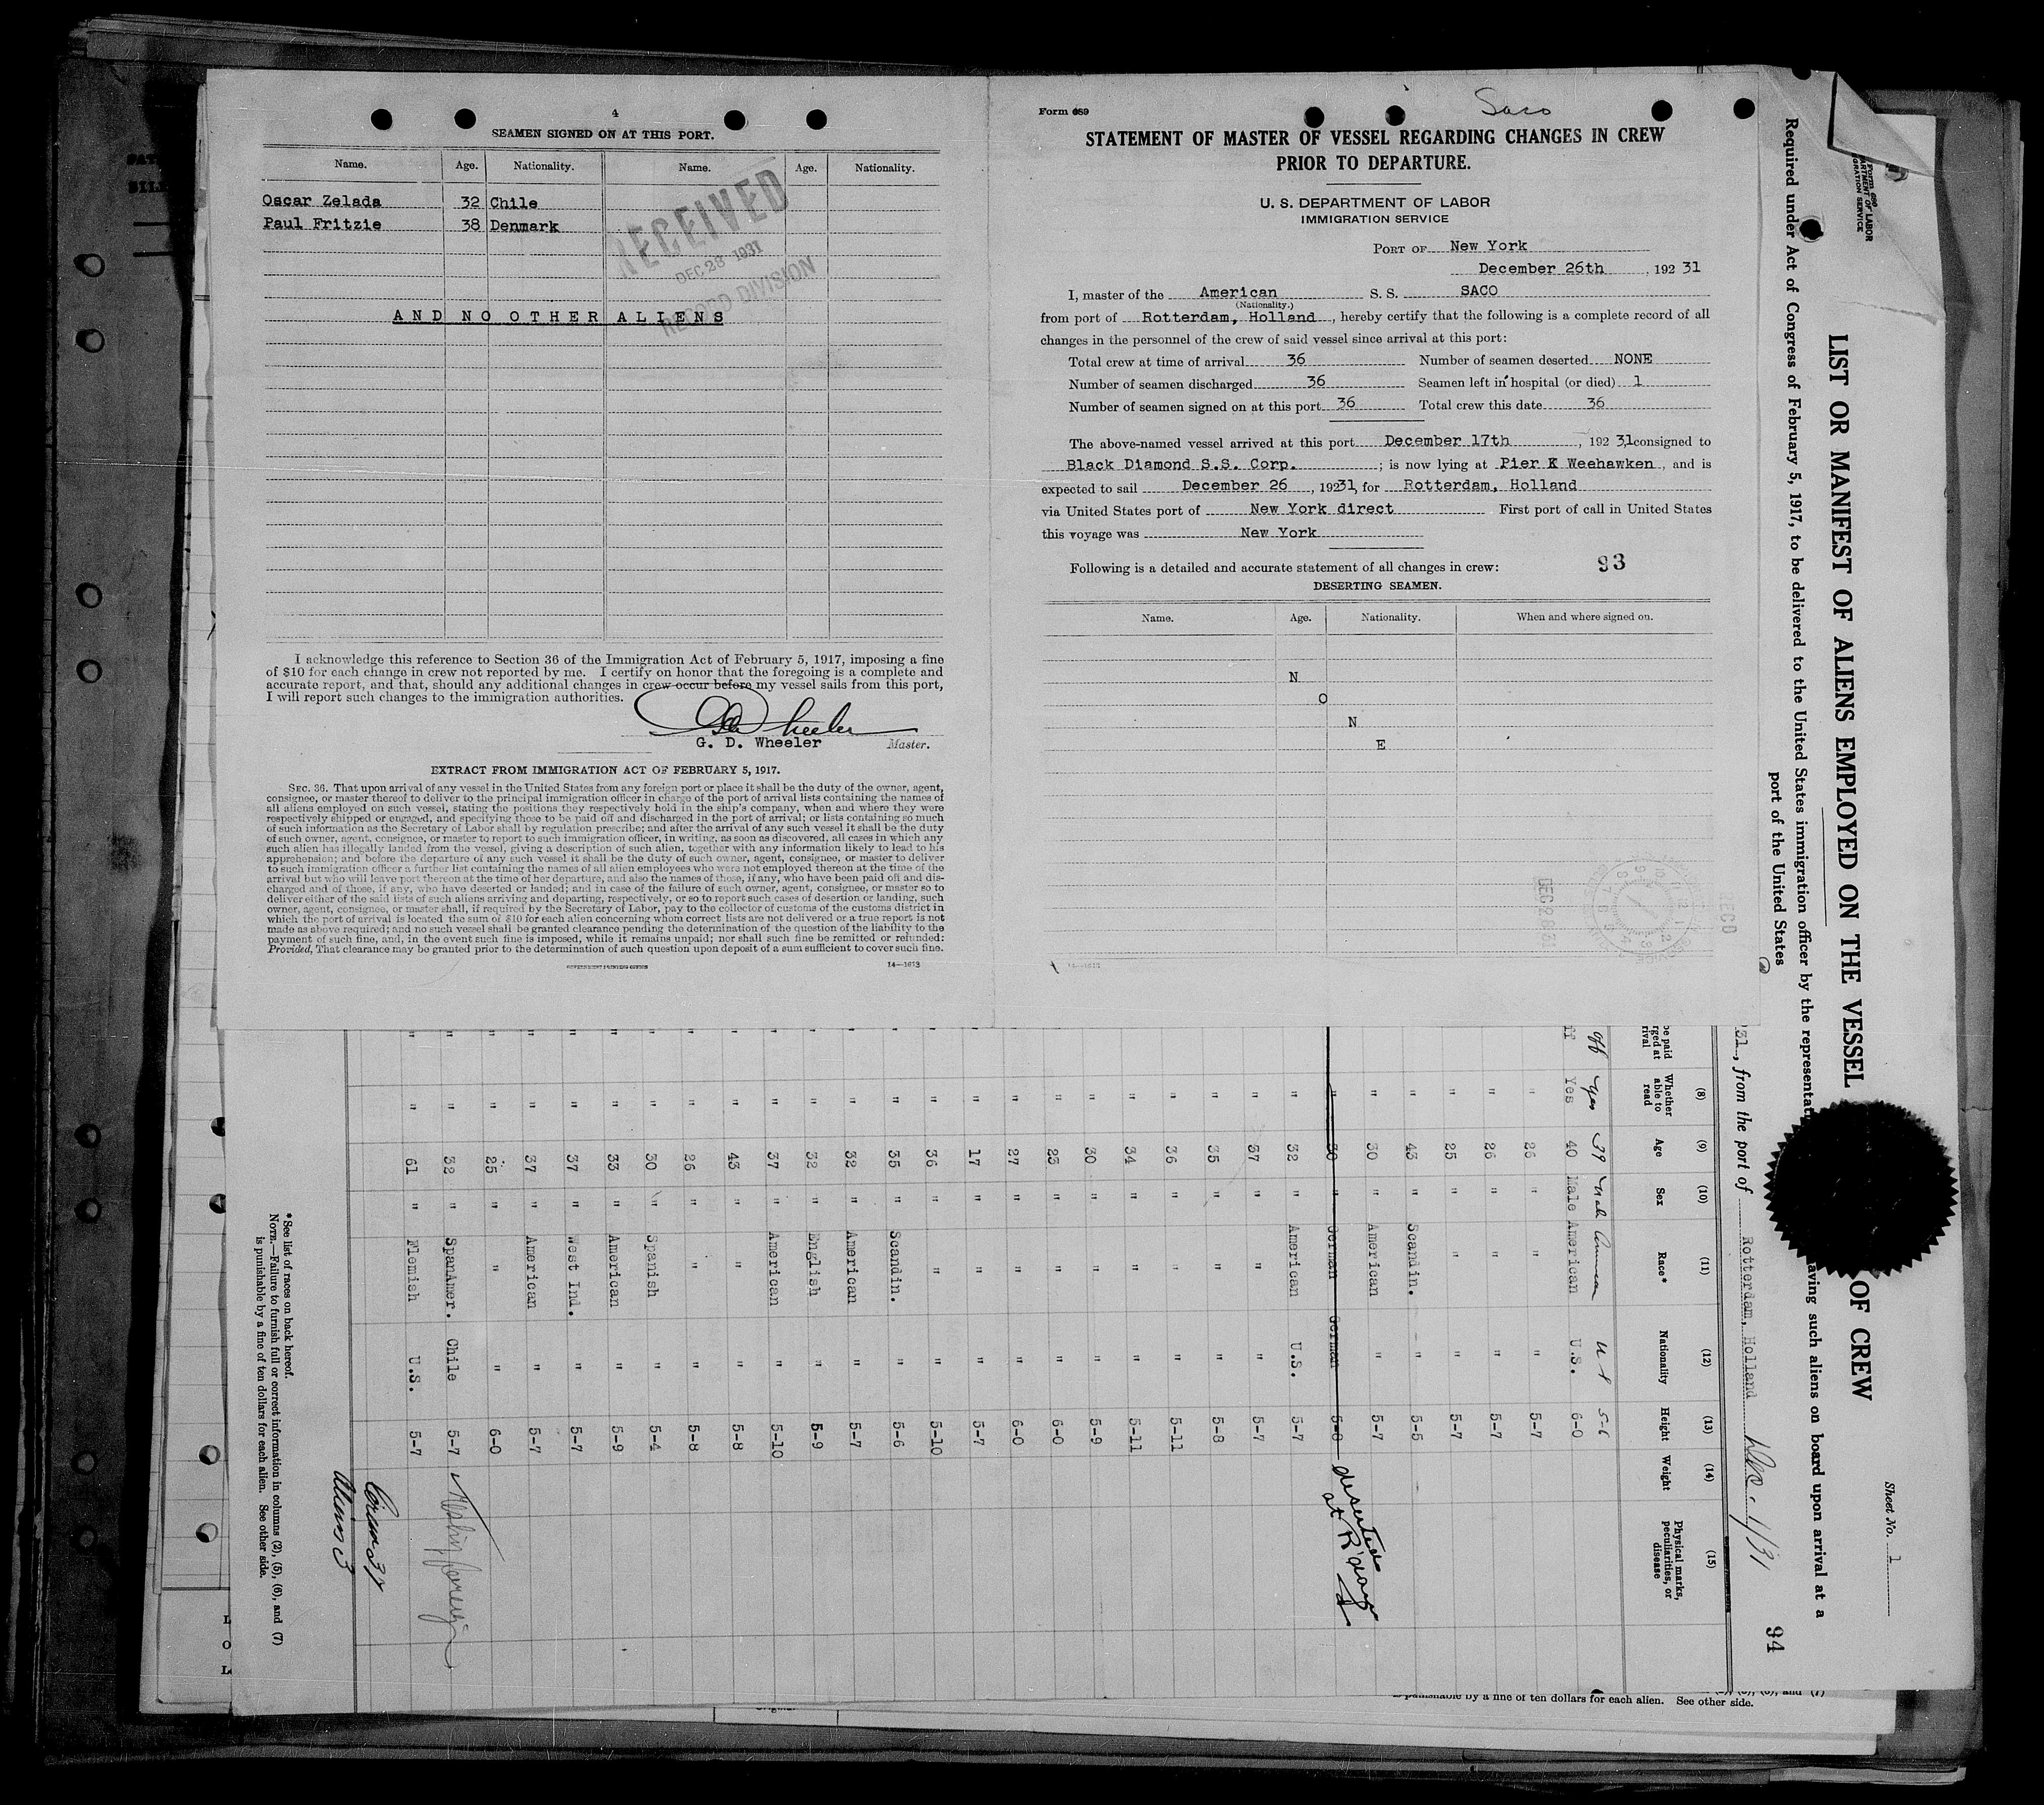 4
SEAMEN SIGNED ON AT THIS PORT.
Name. Age. Nationality. Name. Age. Nationality.
Oscar Zelada 32 Chile
Paul Fritzie 38 Denmark
RECEIVED
DEC 28 1931
RECORD DIVISION
AND NO OTHER ALIENS
I acknowledge this reference to Section 36 of the Immigration Act of February 5, 1917, imposing a fine
of $10 for each change in crew not reported by me. I certify on honor that the foregoing is a complete and
accurate report, and that, should any additional changes in crew occur before my vessel sails from this port,
I will report such changes to the immigration authorities.
G. D. Wheeler Master.
EXTRACT FROM IMMIGRATION ACT OF FEBRUARY 5, 1917.
SEC. 36. That upon arrival of any vessel in the United States from any foreign port or place it shall be the duty of the owner, agent,
consignee, or master thereof to deliver to the principal immigration officer in charge of the port of arrival lists containing the names of
all aliens employed on such vessel, stating the positions they respectively hold in the ship's company, when and where they were
respectively shipped or engaged, and specifying those to be paid off and discharged in the port of arrival; or lists containing so much
of such information as the Secretary of Labor shall by regulation prescribe; and after the arrival of any such vessel it shall be the duty
of such owner, agent, consignee, or master to report to such immigration officer, in writing, as soon as discovered, all cases in which any
such alien has illegally landed from the vessel, giving a description of such alien, together with any information likely to lead to his
apprehension; and before the departure of any such vessel it shall be the duty of such owner, agent, consignee, or master to deliver
to such immigration officer a further list containing the names of all alien employees who were not employed thereon at the time of the
arrival but who will leave port thereon at the time of her departure, and also the names of those, if any, who have been paid off and dis-
charged and of those, if any, who have deserted or landed; and in case of the failure of such owner, agent, consignee, or master so to
deliver either of the said lists of such aliens arriving and departing, respectively, or so to report such cases of desertion or landing, such
owner, agent, consignee, or master shall, if required by the Secretary of Labor, pay to the collector of customs of the customs district in
which the port of arrival is located the sum of $10 for each alien concerning whom correct lists are not delivered or a true report is not
made as above required; and no such vessel shall be granted clearance pending the determination of the question of the liability to the
payment of such fine, and, in the event such fine is imposed, while it remains unpaid; nor shall such fine be remitted or refunded:
Provided, That clearance may be granted prior to the determination of such question upon deposit of a sum sufficient to cover such fine.
GOVERNMENT PRINTING OFFICE 14—1613
Form 689
Saco
STATEMENT OF MASTER OF VESSEL REGARDING CHANGES IN CREW
PRIOR TO DEPARTURE.
U. S. DEPARTMENT OF LABOR
IMMIGRATION SERVICE
PORT OF New York
December 26th, 192 31
I, master of the American S. S. SACO
(Nationality.)
from port of Rotterdam, Holland, hereby certify that the following is a complete record of all
changes in the personnel of the crew of said vessel since arrival at this port:
Total crew at time of arrival 36 Number of seamen deserted NONE
Number of seamen discharged 36 Seamen left in hospital (or died) 1
Number of seamen signed on at this port 36 Total crew this date 36
The above-named vessel arrived at this port December 17th, 192 31 consigned to
Black Diamond S.S. Corp.; is now lying at Pier K Weehawken, and is
expected to sail December 26, 19231, for Rotterdam, Holland
via United States port of New York direct First port of call in United States
this voyage was New York
Following is a detailed and accurate statement of all changes in crew: 93
DESERTING SEAMEN.
Name. Age. Nationality. When and where signed on.
N
O
N
E
DEC 28 31
14—1613
LIST OR MANIFEST OF ALIENS EMPLOYED ON THE VESSEL
OF CREW
Required under Act of Congress of February 5, 1917, to be delivered to the United States immigration officer by the representat
aving such aliens on board upon arrival at a
port of the United States
Sheet No. 1
94
31, from the port of Rotterdam, Holland Dec. 1/31
(8) (9) (10) (11) (12) (13) (14) (15)
Whether able to read Age Sex Race* Nationality Height Weight Physical marks, peculiarities, or disease
off yes 39 Male American U S 5-6
ff Yes 40 Male American U.S. 6-0
" 26 " " " 5-7
" 26 " " " 5-7
" 25 " " " 5-7
" 43 " Scandin. " 5-5
" 30 " American " 5-7
" 30 " German German 5-8 deserted at R'dam
" 32 " American U.S. 5-7
" 37 " " " 5-7
" 35 " " " 5-8
" 36 " " " 5-11
" 34 " " " 5-11
" 30 " " " 5-9
" 23 " " " 6-0
" 27 " " " 6-0
" 17 " " " 5-7
" 36 " " " 5-10
" 35 " Scandin. " 5-6
" 32 " American " 5-7
" 32 " English " 5-9
" 37 " American " 5-10
" 43 " " " 5-8
" 26 " " " 5-8
" 30 " Spanish " 5-4
" 33 " American " 5-9
" 37 " West Ind. " 5-7
" 37 " American " 5-7
" 25 " " " 6-0
" " 32 " SpanAmer. Chile 5-7
" " 61 " Flemish U.S. 5-7
Crew 37
Aliens 3
* See list of races on back hereof.
NOTE.—Failure to furnish full or correct information in columns (2), (5), (6), and (7)
is punishable by a fine of ten dollars for each alien. See other side.
is punishable by a fine of ten dollars for each alien. See other side.